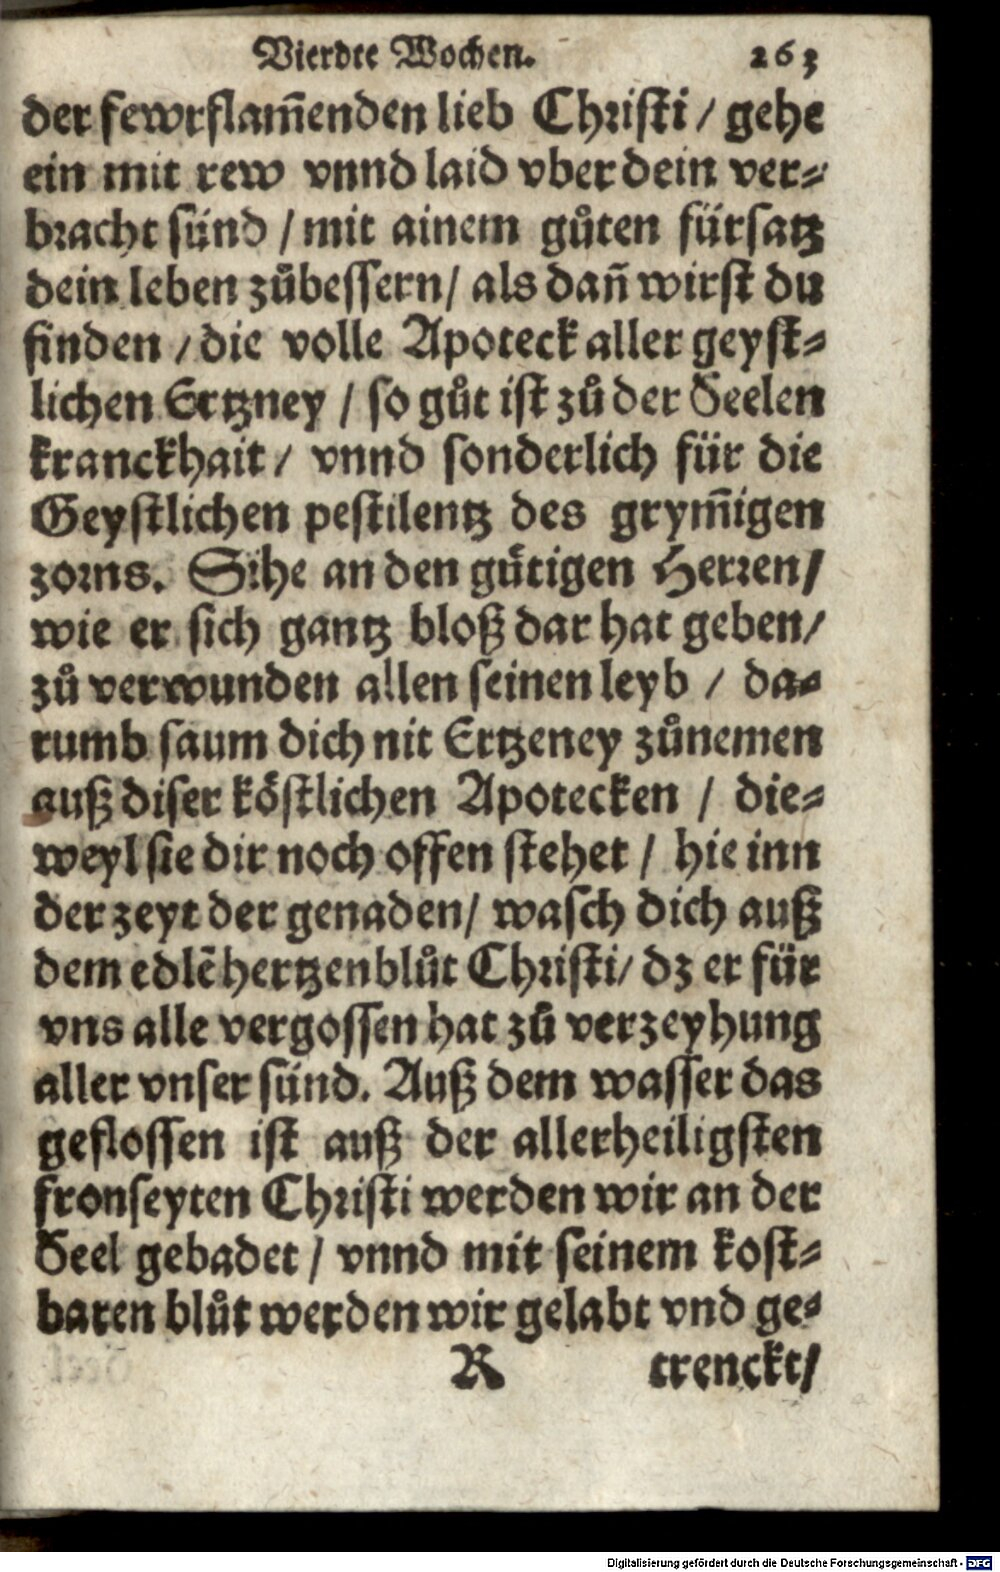 Vierdte Wochen. 263
der fewrflam̃enden lieb Christi / gehe
ein mit rew vnnd laid vber dein ver-
bracht sünd / mit ainem gůten fürsatz
dein leben zůbessern / als dañ wirst du
finden / die volle Apoteck aller geyst-
lichen Ertzney / so gůt ist zů der Seelen
kranckhait / vnnd sonderlich für die
Geystlichen pestilentz des grym̃igen
zorns. Sihe an den gütigen Herren /
wie er sich gantz bloß dar hat geben /
zů verwunden allen seinen leyb / da-
rumb saum dich nit Ertzeney zůnemen
auß diser köstlichen Apotecken / die-
weyl sie dir noch offen stehet / hie inn
der zeyt der genaden / wasch dich auß
dem edlē hertzenblůt Christi / dz er für
vns alle vergossen hat zů verzeyhung
aller vnser sünd. Auß dem wasser das
geflossen ist auß der allerheiligsten
fronseyten Christi werden wir an der
Seel gebadet / vnnd mit seinem kost-
baren blůt werden wir gelabt vnd ge-
R trenckt /
Digitalisierung gefördert durch die Deutsche Forschungsgemeinschaft - DFG